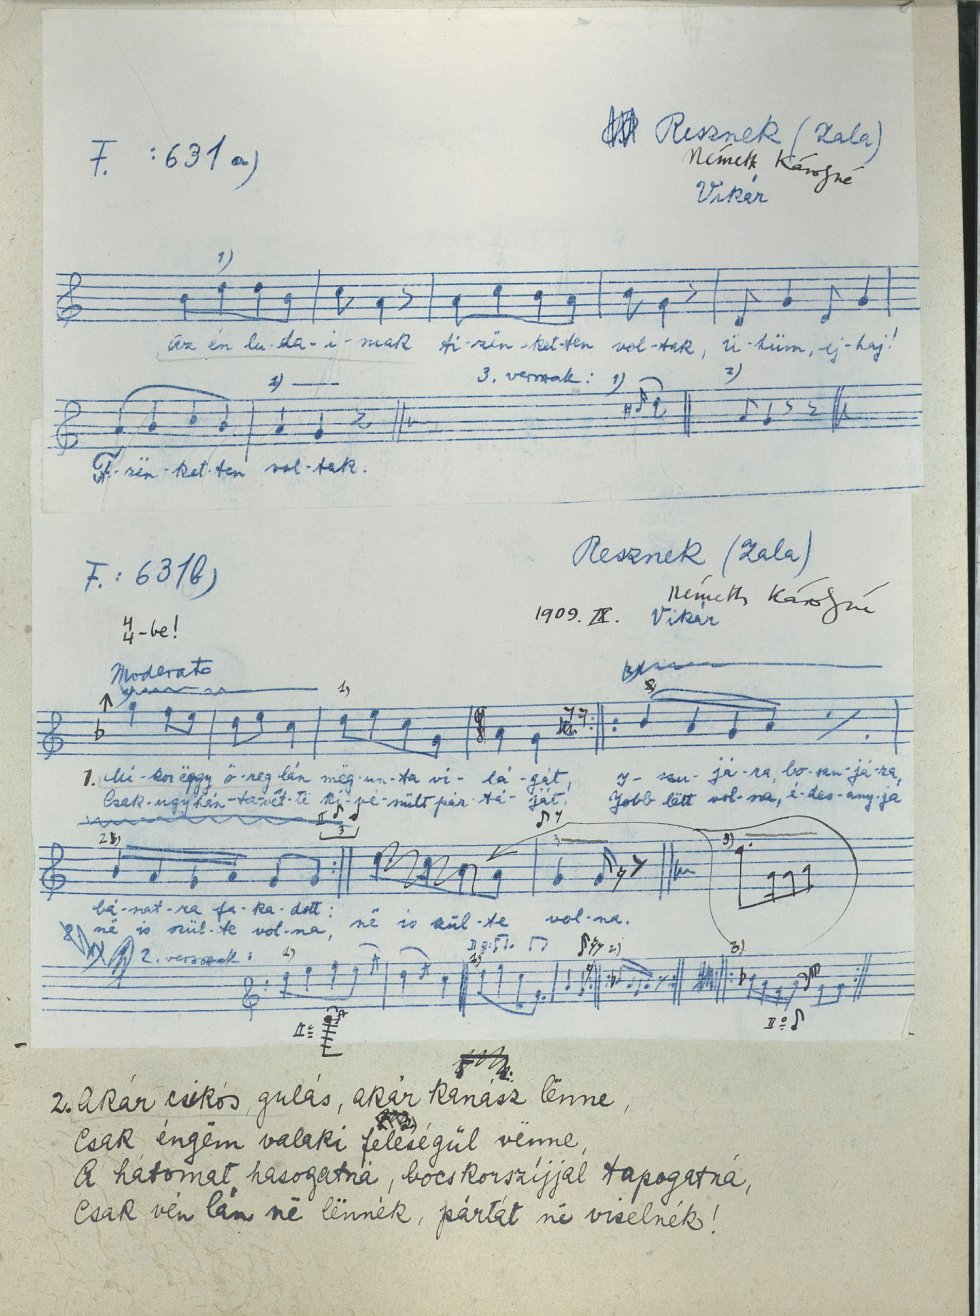 F. : 631 a)
Resznek (Zala)
Németh Károlyné
Vikár
1)
Az én lu-da-i-mak ti-zën-ket-ten vol-tak, ü-hüm, ej-haj!
2)
3. versszak: 1) 2)
Ti-zën-ket-ten vol-tak.
F. : 631 b)
Resznek (Zala)
Németh Károlyné
1909. IX. Vikár
4/4-be!
Moderato
1)
1. Mi-kor ëggy ö-reg lán mëg-un-ta vi-lá-gát, Y-szu-já-ra, bo-szu-já-ra,
Csak-ugy hán-ta-vet-te ki-vé-nült pár-tá-ját, Jobb lëtt vol-na, é-des-any-já
3
3)
bá-nat-ra fa-ka-dott:
në is szül-te vol-na, në is szül-te vol-na.
2. versszak: 1) 2) 3)
2. Akár csikós, gulás, akár kanász lënne,
Csak éngëm valaki feleségül vënne,
A hátomat hasogatná, bocskorszíjjal tapogatná,
Csak vén lán në lënnék, pártát në viselnék!